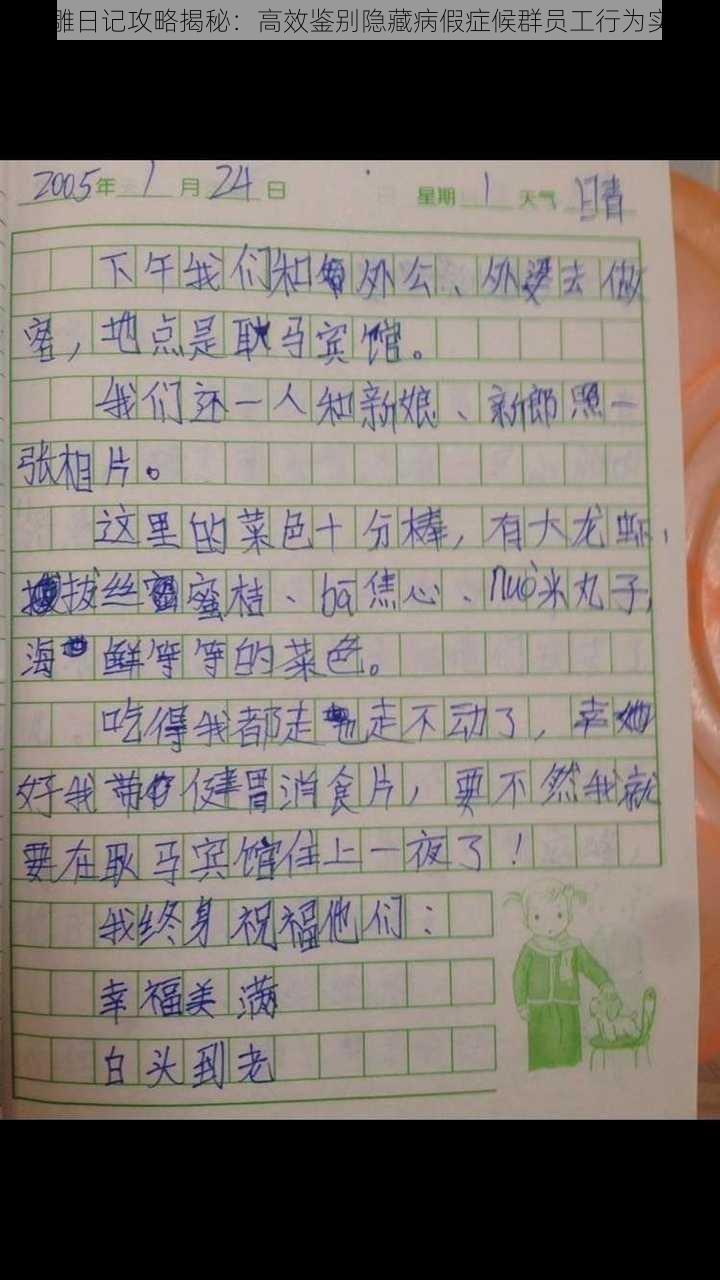 雕日记攻略揭秘：高效鉴别隐藏病假症候群员工行为实
2005年1月24日 星期1天气晴
下午我们和外公、外婆去做
客，地点是耿马宾馆。
我们还一人和新娘、新郎照一
张相片。
这里的菜色十分棒，有大龙虾，
拔丝蜜桔、bā焦心、nuò米丸子，
海鲜等等的菜色。
吃得我都走也走不动了，幸
好我带健胃消食片，要不然我就
要在耿马宾馆住上一夜了！
我终身祝福他们：
幸福美满
白头到老